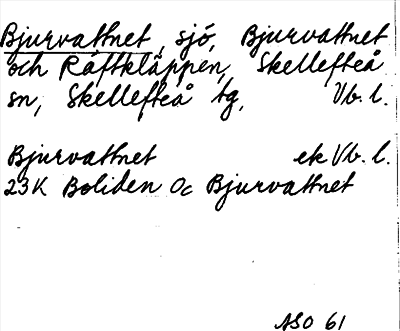 Bjurvattnet, sjö, Bjurvattnet
och Råftkläppen, Skellefteå
sn, Skellefteå tg, Vb. l.
Bjurvattnet ek Vb. l.
23K Boliden Oc Bjurvattnet
ASO 61